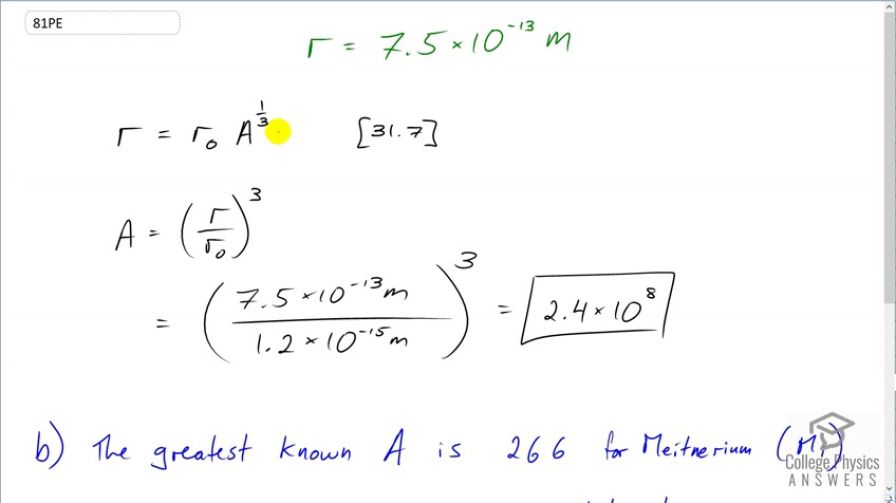 81PE
r = 7.5 × 10⁻¹³ m
r = r₀ A^(1/3) [31.7]
A = (r/r₀)³
= (7.5×10⁻¹³ m / 1.2×10⁻¹⁵ m)³ = 2.4×10⁸
b) The greatest known A is 266 for Meitnerium
College Physics
ANSWERS